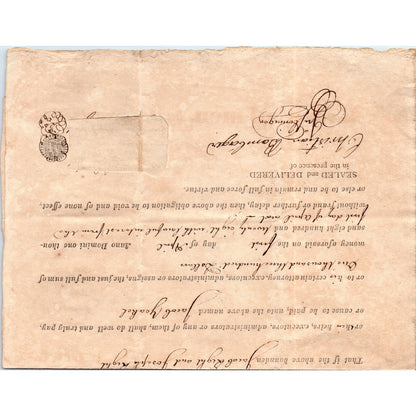 That if the above bounden Jacob Light and Joseph Light
heirs, executors, administrators or any of them, do well and truly pay,
or cause to be paid unto the above named Jacob Yeakel
or to his certain attorney, executors, administrators or assigns, the just and full sum of
One thousand three hundred Dollars
money aforesaid on the first day of April Anno Domini one thou-
sand eight hundred and twenty eight with lawful interest from the
first day of April next
without fraud or further delay, then the above obligation to be void and of none effect,
or else to be and remain in full force and virtue.
SEALED and DELIVERED
in the presence of
Christian Bomberger